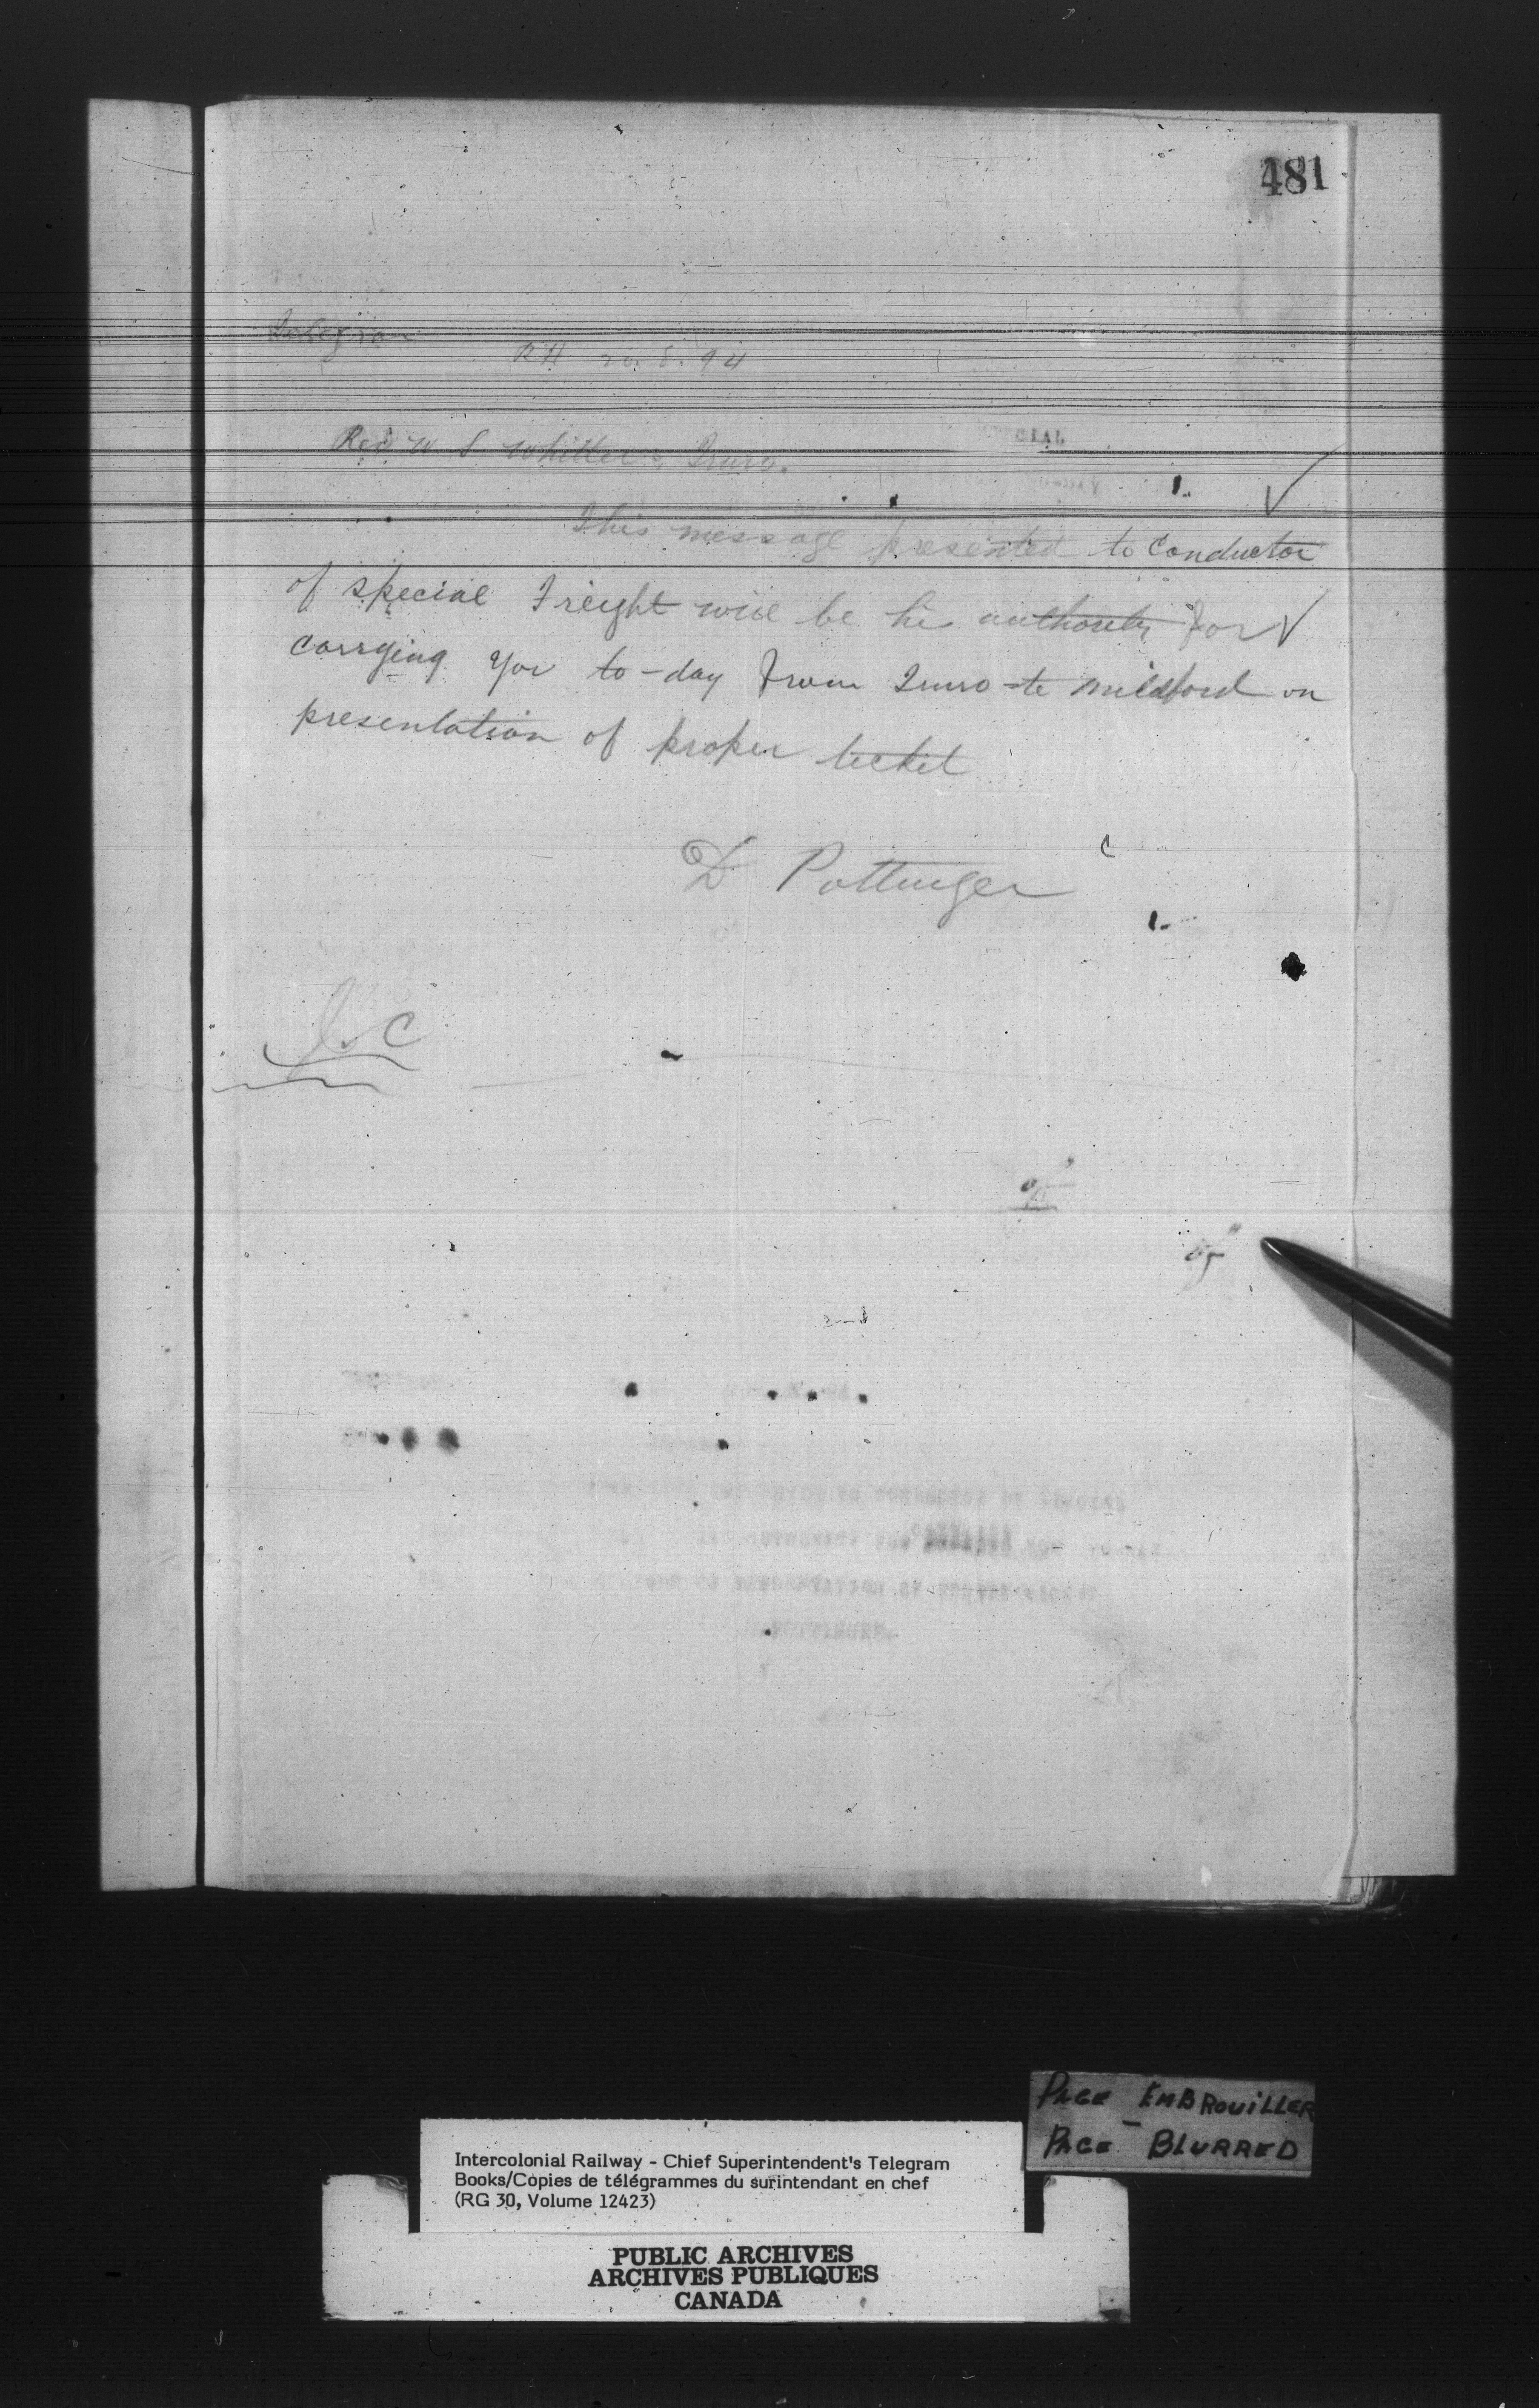 481
Telegram
RH 20. 8. 94
Rev W S Whittier Truro.
This message presented to Conductor
of special Freight will be his authority for
carrying you to-day from Truro to Milford on
presentation of proper ticket
D Pottinger
PAGE EMBROUILLER
PAGE BLURRED
Intercolonial Railway - Chief Superintendent's Telegram
Books/Copies de télégrammes du surintendant en chef
(RG 30, Volume 12423)
PUBLIC ARCHIVES
ARCHIVES PUBLIQUES
CANADA